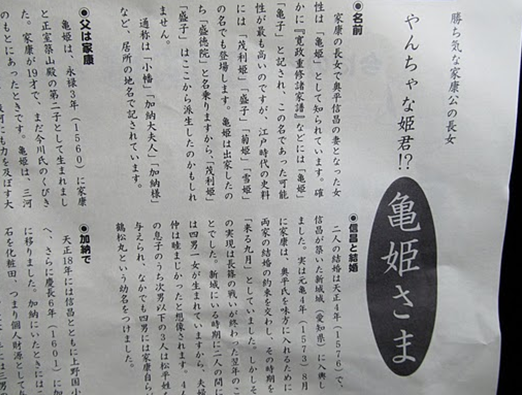 勝ち気な家康公の長女
やんちゃな姫君!?
亀姫さま
●名前
家康の長女で奥平信昌の妻となった女
性は「亀姫」として知られています。確
かに『寛政重修諸家譜』などには「亀姫」
「亀子」と記され、この名であった可能
性が最も高いのですが、江戸時代の史料
には「茂利姫」「盛子」「菊姫」「雪姫」
の名でも登場します。亀姫は出家したの
ち「盛徳院」と名乗りますから、「茂利姫」
「盛子」はここから派生したのかもしれ
ません。
通称は「小幡」「加納大夫人」「加納様」
など、居所の地名で記されています。
●父は家康
亀姫は、永禄3年(1560)に家康
と正室築山殿の第二子として生まれまし
た。家康が19才で、まだ今川氏のくびき
のもとにあったときです。亀姫は、三河
にも力を及ぼす大
●信昌と結婚
二人の結婚は天正4年(1576)で、
信昌が築いた新城城(愛知県)に入輿し
ました。実は元亀4年(1573)8月
に家康は、奥平氏を味方に入れるために
両家の結婚の約束を交わし、その時期を
「来る九月」としていました。しかしそ
の実現は長篠の戦いが終わった翌年のこ
とでした。新城にいる時期に二人の間に
は四男一女が生まれていますから、夫婦
仲は睦まじかったと想像されます。4人
の息子のうち次男以下の3人は松平姓を
与えられ、なかでも四男には家康自ら
鶴松丸という幼名をつけました。
●加納で
天正18年には信昌とともに上野国小
へ、さらに慶長6年(1601)に加
に移りました。加納にいたときには
石を化粧田、つまり個人財源として与